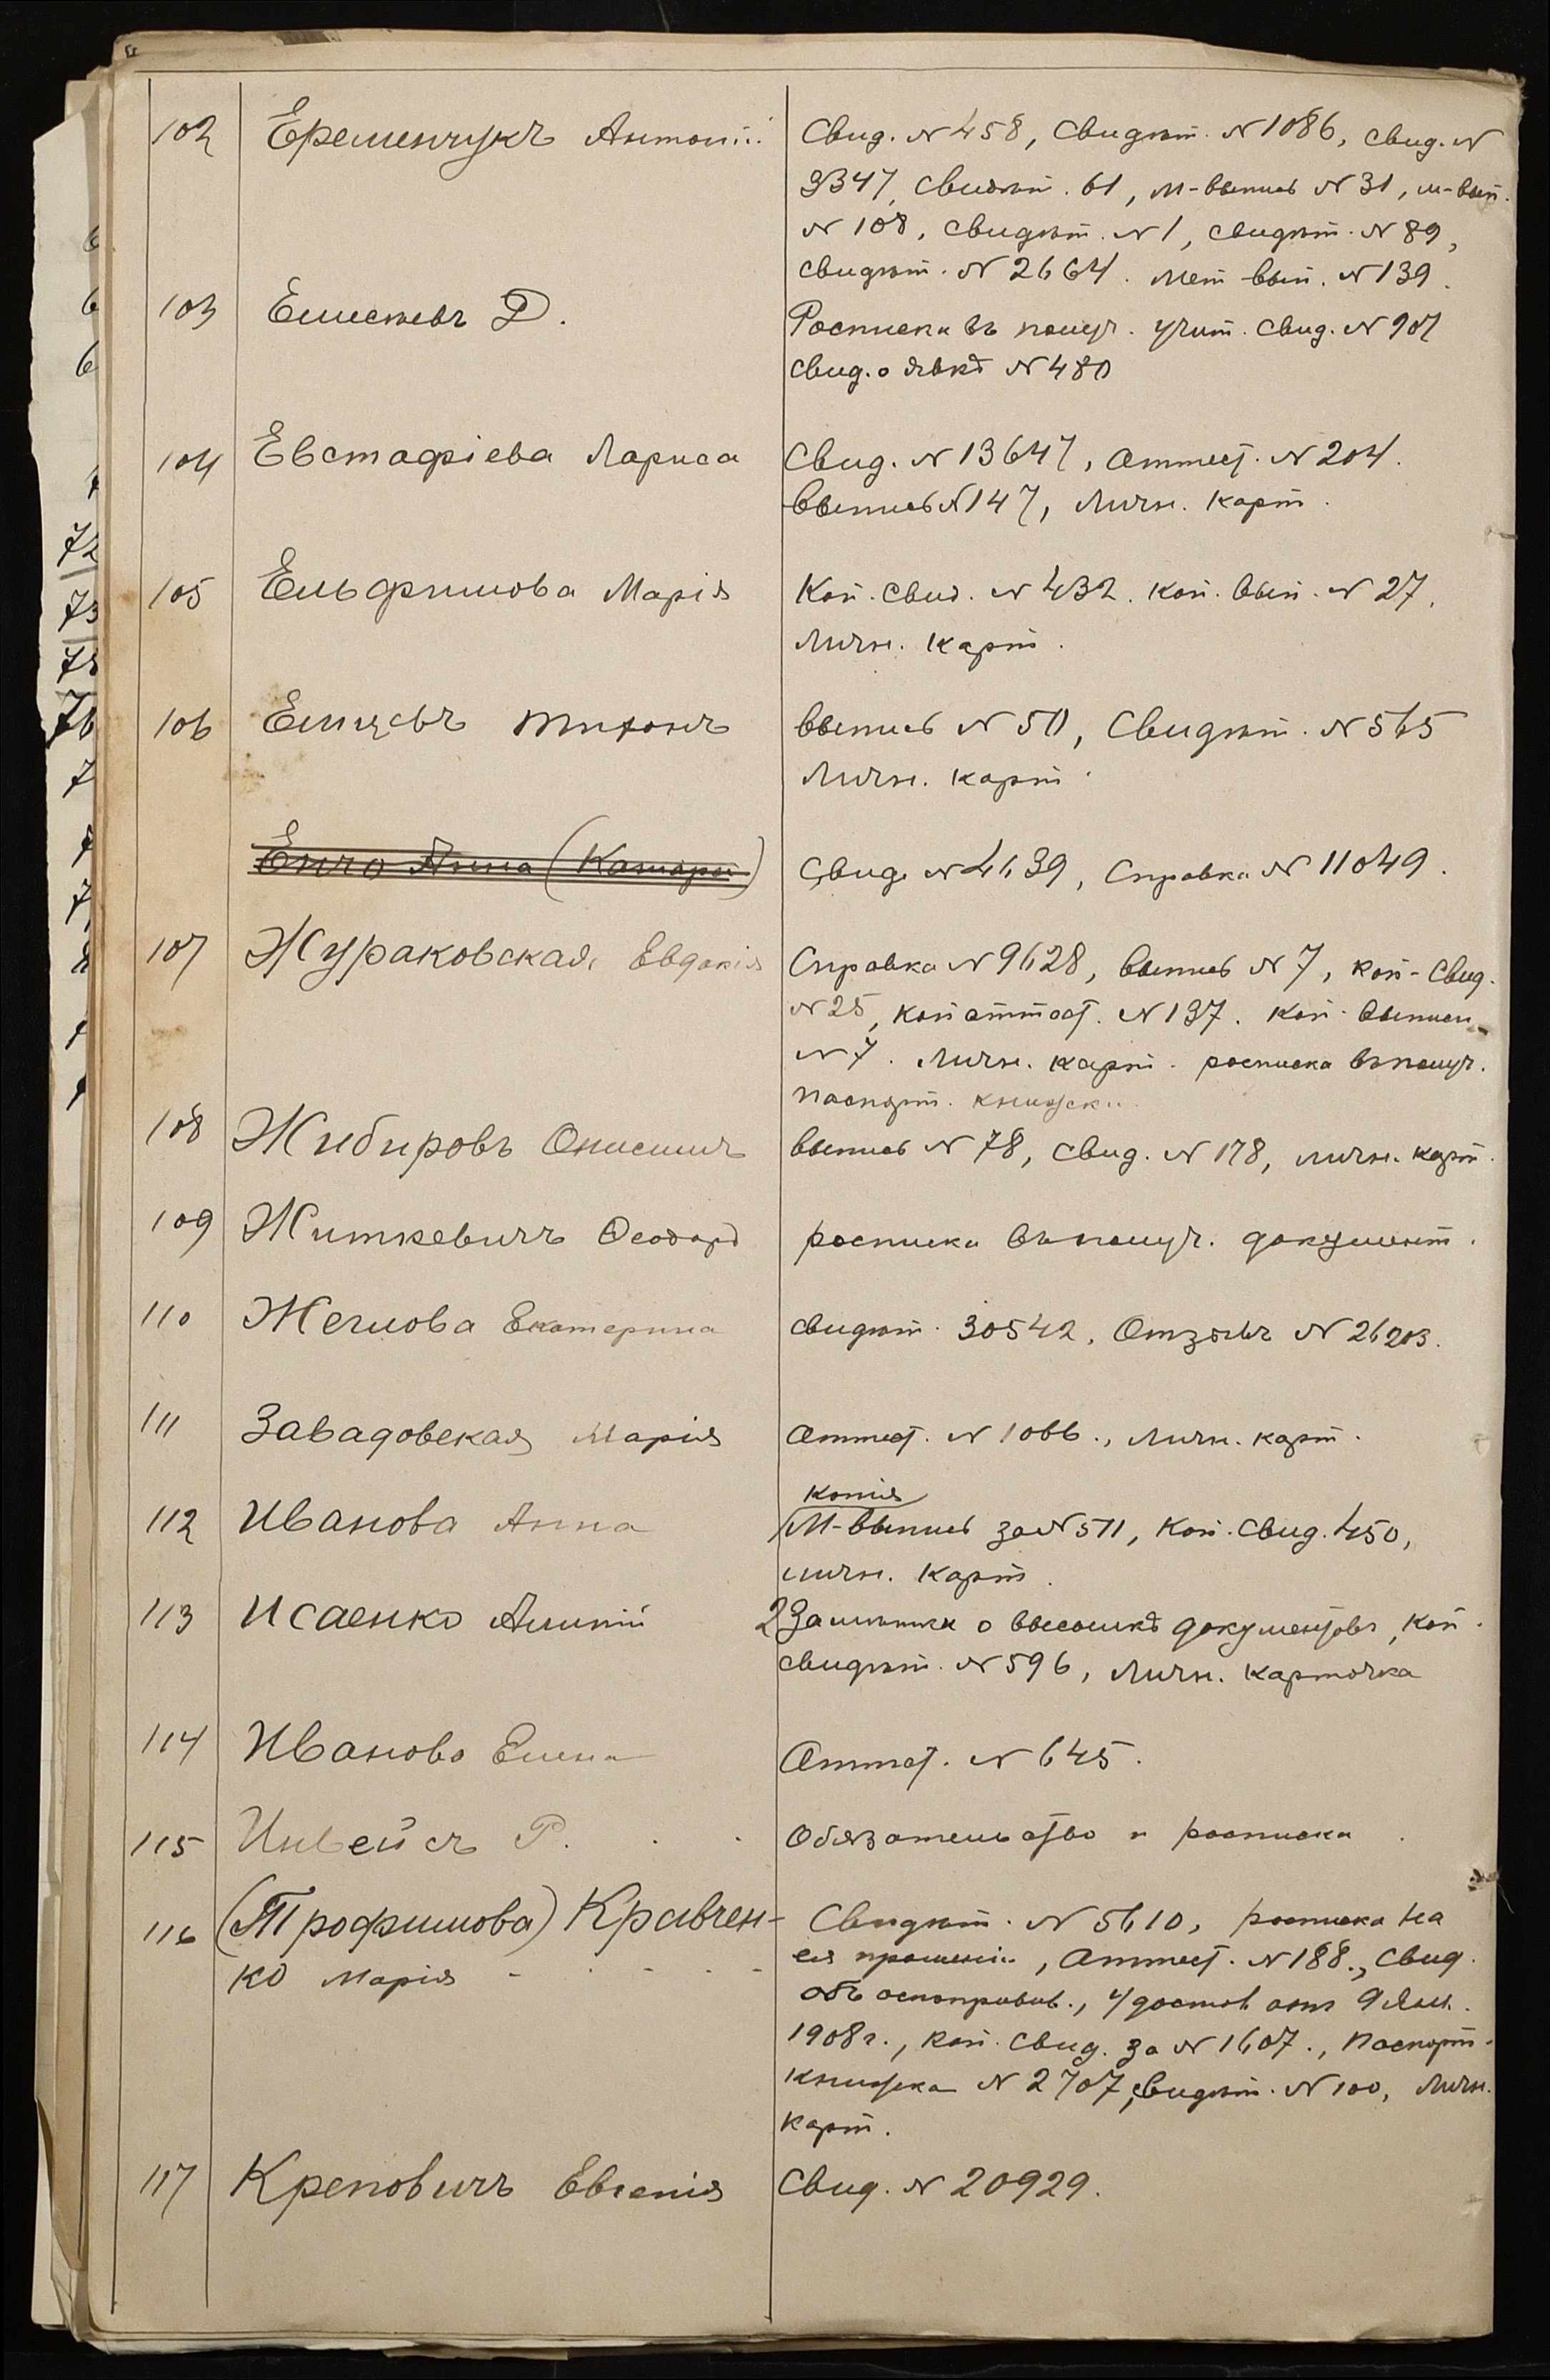 102 Еременчукъ Антоній Свид. № 458, Свидѣт. № 1086, свид. №
3347, свидѣт. 61, м-выпись № 31, м-вып.
№ 108, свидѣт. № 1, свидѣт. № 89,
свидѣт. № 2664. Мет-вып. № 139.
103 Д. Росписка въ получ. учит. свид. № 907
свид. о явкѣ № 480
104 Евстафіева Лариса Свид. № 13647, аттест. № 204.
выпись № 147, Личн. карт.
105 Ельфимова Марія Коп. свид. № 432. коп. вып. № 27.
Личн. карт.
106 Емцевъ Тихонъ выпись № 50, Свидѣт. № 565
Личн. карт.
Анна Свид. № 4639, Справка № 11049.
107 Жураковская Евдокія Справка № 9628, выпись № 7, коп-свид.
№ 25, коп аттест. № 137. коп. выписи
№ 7. Личн. карт. росписка въ получ.
паспорт. книжки
108 Жибировъ Онисимъ выпись № 78, свид. № 178, личн. карт.
109 Житкевичъ Ѳеодоръ росписка въ получ. документ.
110 Жеглова Екатерина свидѣт. 30542, Отзывъ № 26203.
111 Завадовская Марія аттест. № 1066., Личн. карт.
копія
112 Иванова Анна М-выпись за № 511, Коп. свид. 450,
личн. карт.
113 Исаенко 2 о высылкѣ документовъ, коп.
свидѣт. № 596, Личн. карточка
114 Иванова Елена Аттест. № 645.
115 Инвейсъ Р. . . Обязательство и росписка.
116 (Трофимова) Кравчен- Свидѣт. № 5610, росписка на
ко Марія - . - . - ея прошеніи, Аттест. № 188., Свид.
объ оспопривив., удостов отъ 9 Янв.
1908 г., коп. свид. за № 1607., паспорт-
книжка № 2707, Свидѣт. № 100, Личн.
карт.
117 Креповичъ Евгенія Свид. № 20929.